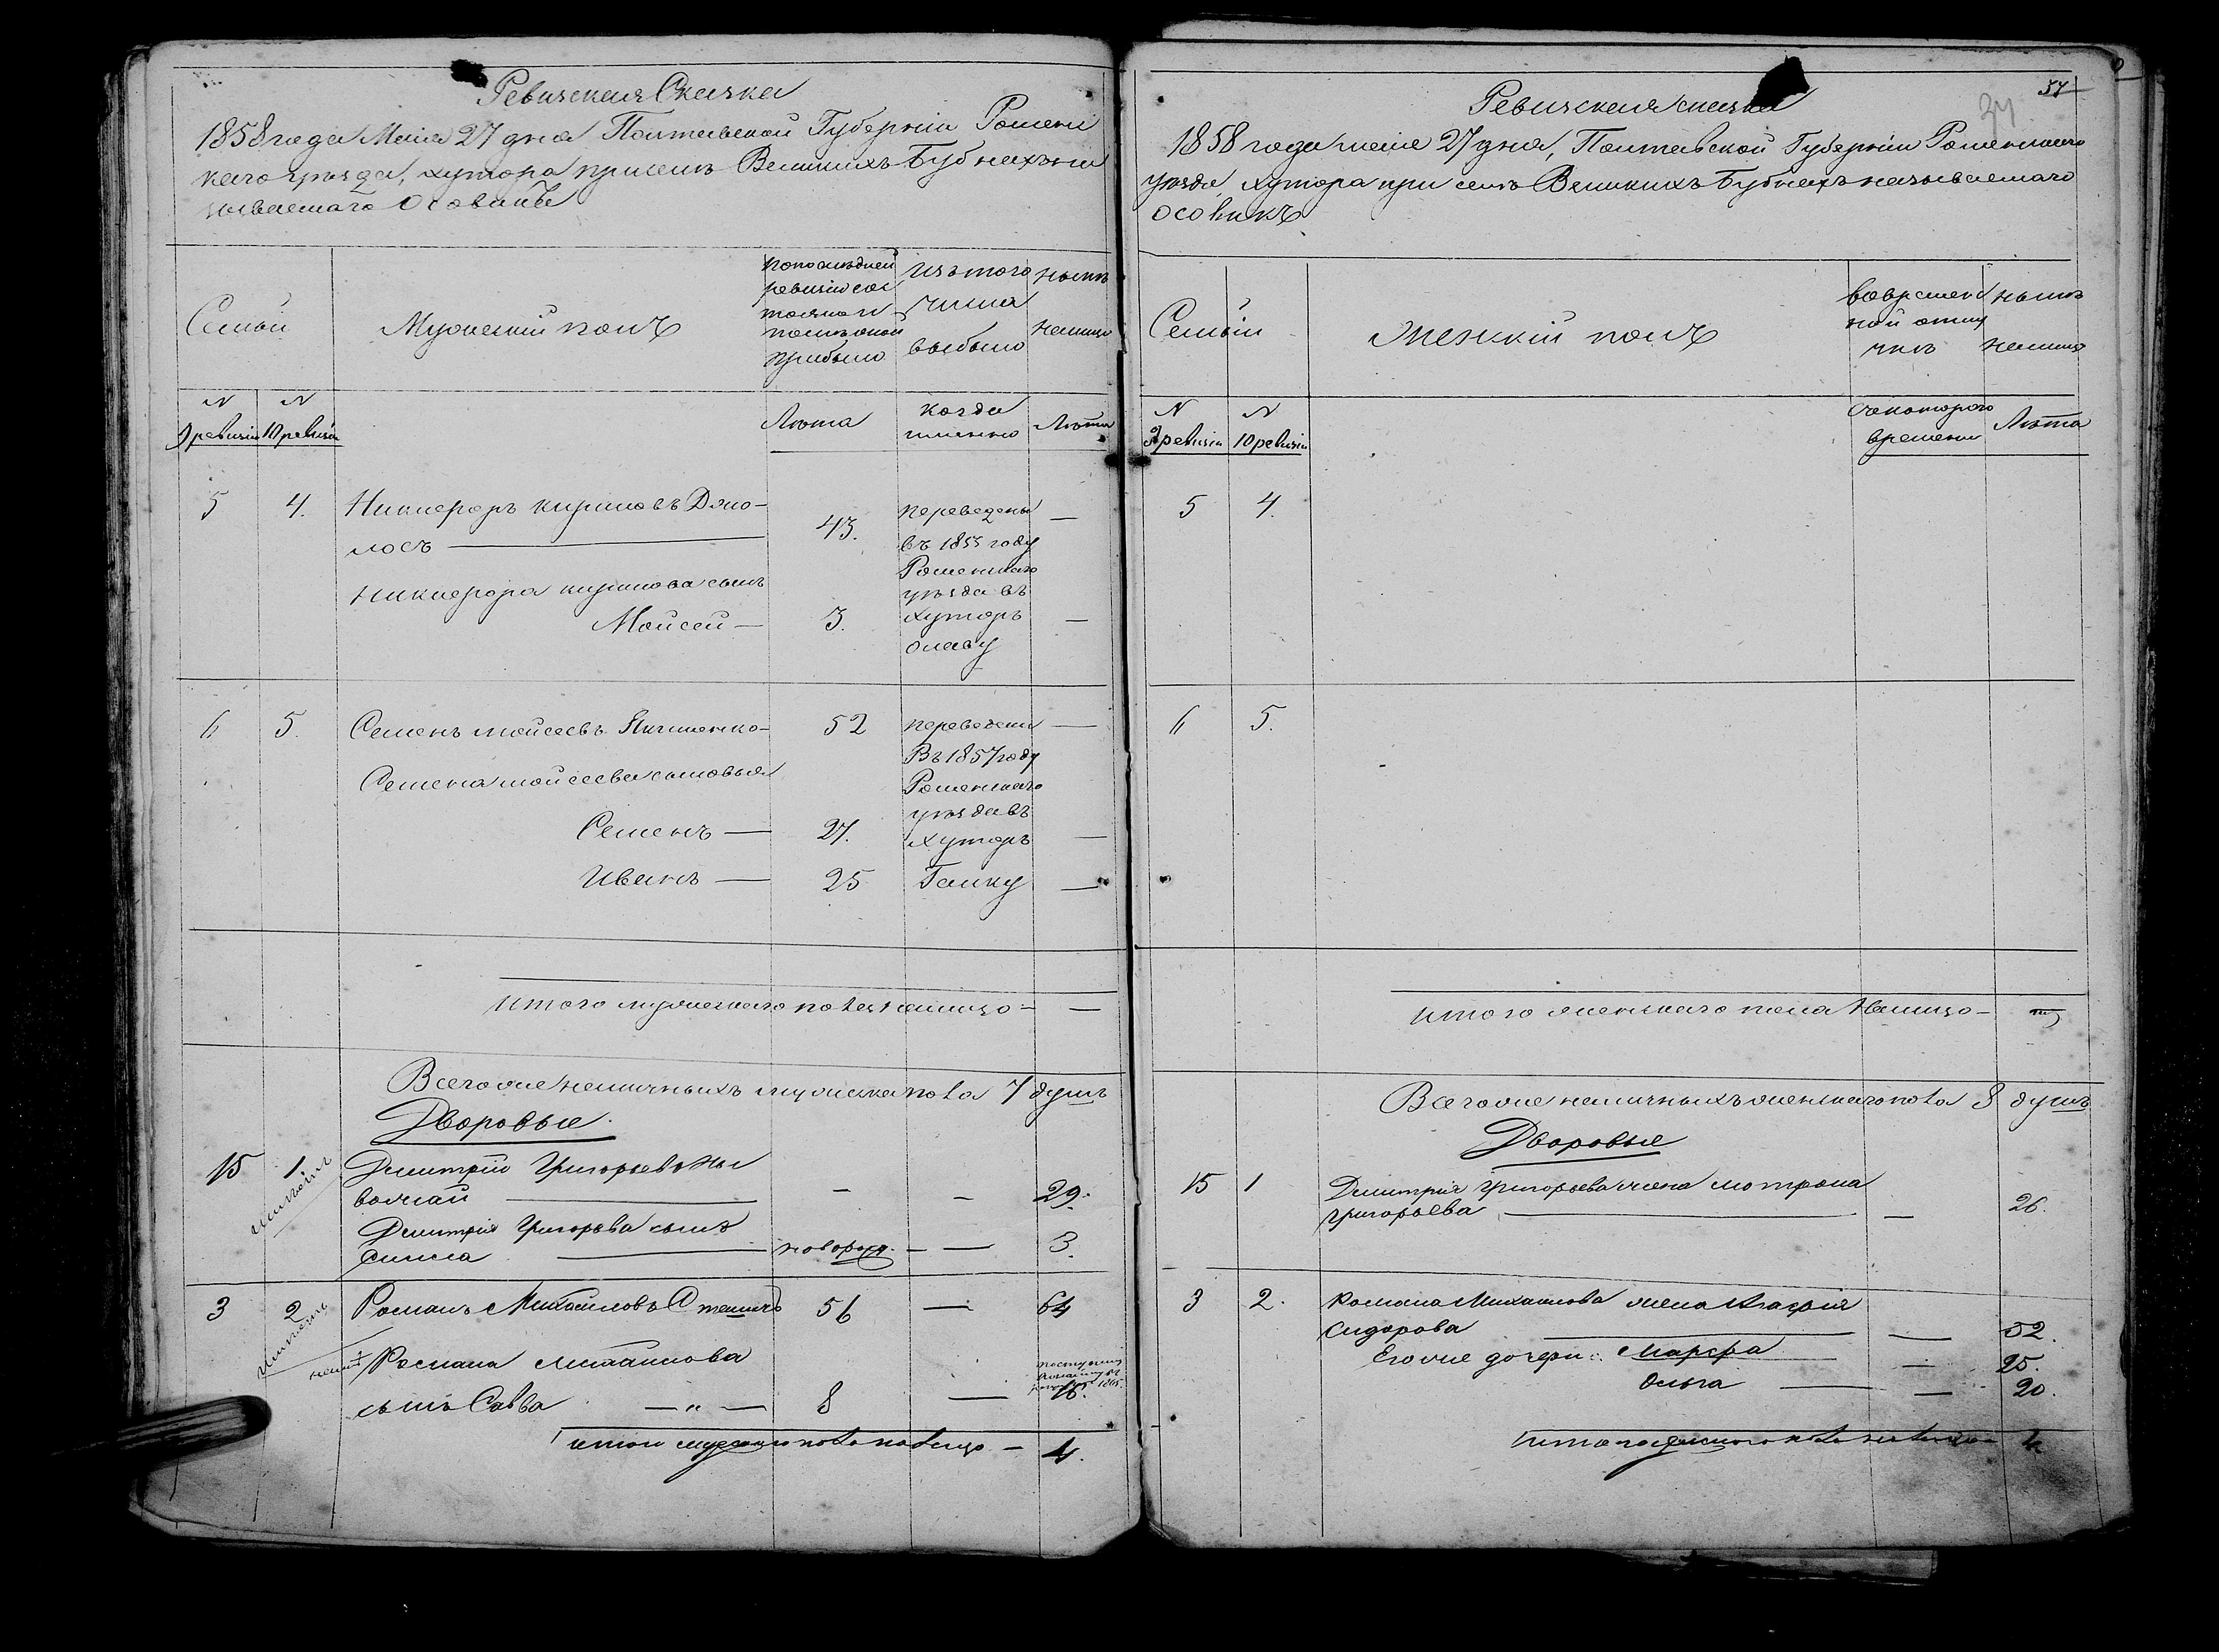 Ревизская Сказка
1858 года Маія 27 дня Полтавской Губерніи Ромен
скаго уѣзда, хутора при селѣ Великихъ Бубнахъ на
зываемаго Осовикъ
Семьи
Мужескій полъ
по последней
ревизіи сос
тояло и
после оной
прибыло
изъ того
числа
выбыло
нынѣ
на лицо
N
9 ревизіи
N
10 ревизіи
Лѣта
когда
именно
Лѣта
5 4. Никифоръ Кириловъ 43. переведены —
въ 1855 году
Роменскаго
уѣзда въ
хуторъ
Никифора Кирилова сынъ
Мойсей — 3. —
6 5. Семенъ Мойсеевъ 52 переведены —
Въ 1857 году
Роменскаго
уѣзда въ
хуторъ
Гайку
Семена Мойсеева сыновья
Семенъ — 27. —
Иванъ — 25 —
Итого мужескаго пола на лицо — —
Всего же наличныхъ мужска пола 7 душъ
Дворовые.
15 1. Дмитрій Григорьевъ — — 29.
Дмитрія Григорьева сынъ
новорожд. — — 3.
3 2 Романъ Михайловъ 56 — 64
Романа Михайлова
сынъ Савва — " — 8 — 16.
Итого мужескаго пола на лицо — 4.
37
27
Ревизская сказка
1858 года маія 27 дня, Полтавской Губерніи Роменскаго
уѣзда, хутора при селѣ Великихъ Бубнахъ называемаго
Осовикъ
Семьи
Женскій полъ
во времен
ной отлу
чкѣ
нынѣ
на лицо
N
9 ревизіи
N
10 ревизіи
съ котораго
времени
Лѣта
5 4.
6 5.
Итого женскаго пола на лицо — —
Всего же наличныхъ женскаго пола 8 душъ
Дворовые
15 1 Дмитрія Григорьева жена Мотрона
Григорьева — — 26.
3 2. Романа Михайлова жена Агафія
Сидорова — — 52.
Его же дочери: Марфа — 25.
Ольга — — 20.
Итого женскаго пола на лицо 4